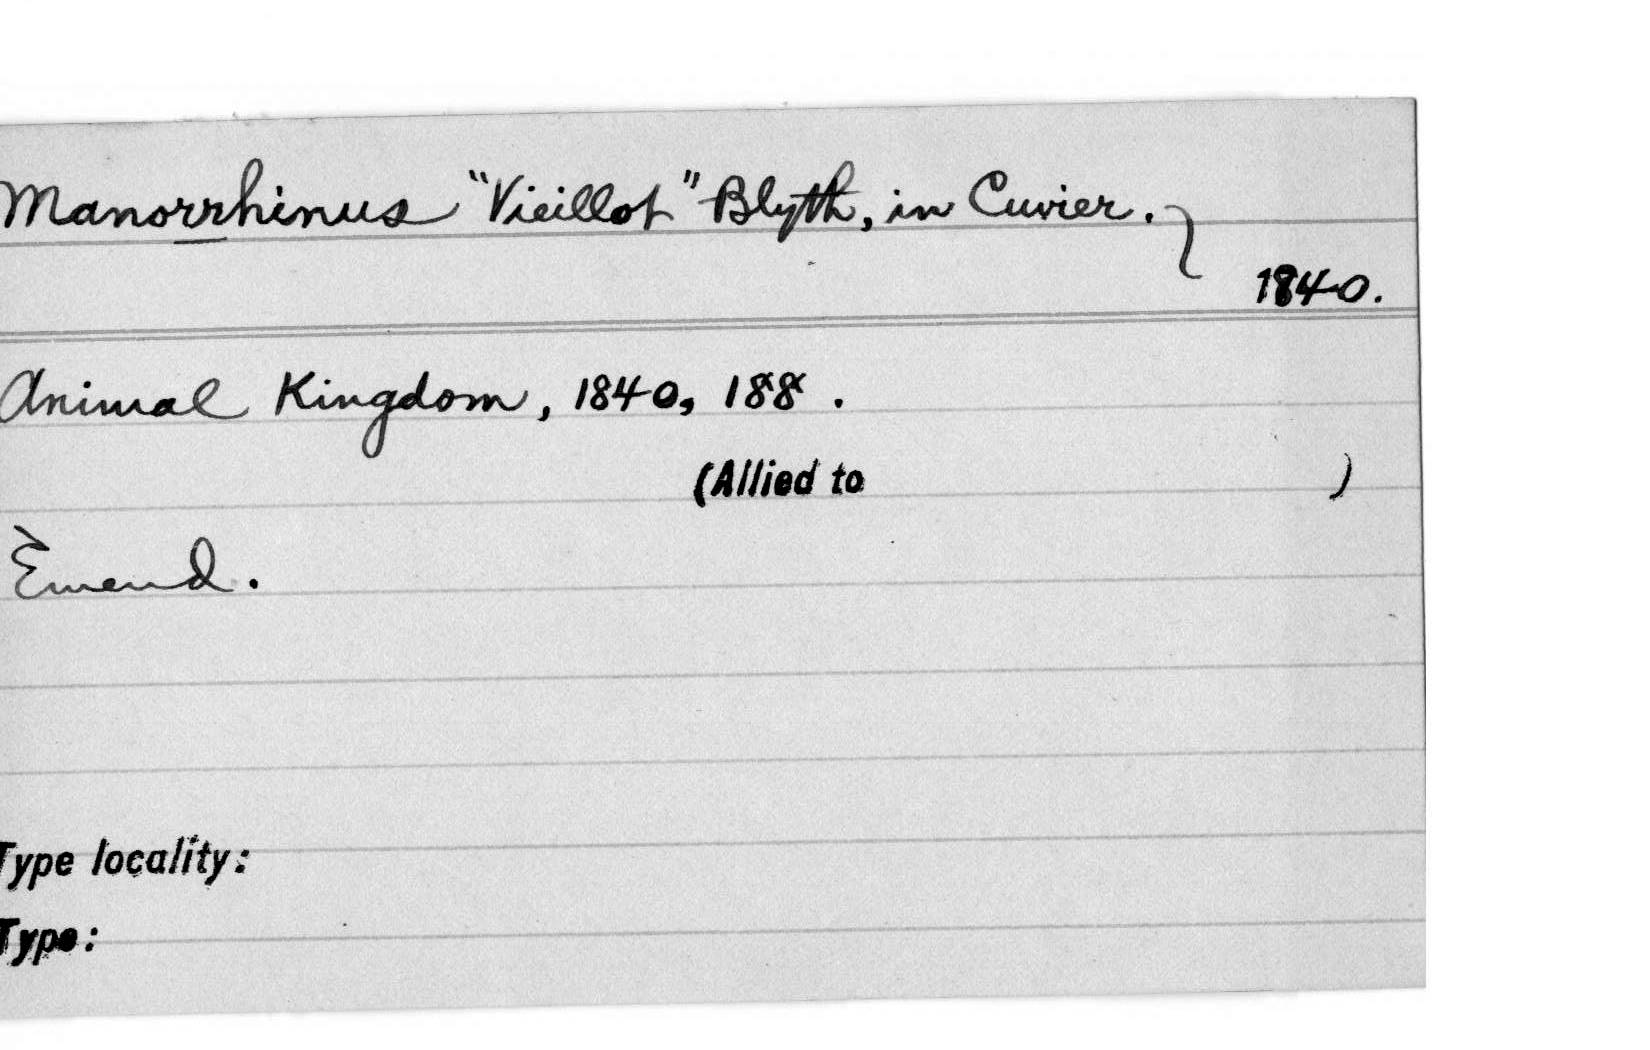 Manorrhinus "Vieillot" Blyth, in Cuvier.
1840.
Animal Kingdom, 1840, 188.
(Allied to )
Emend.
Type locality:
Type: